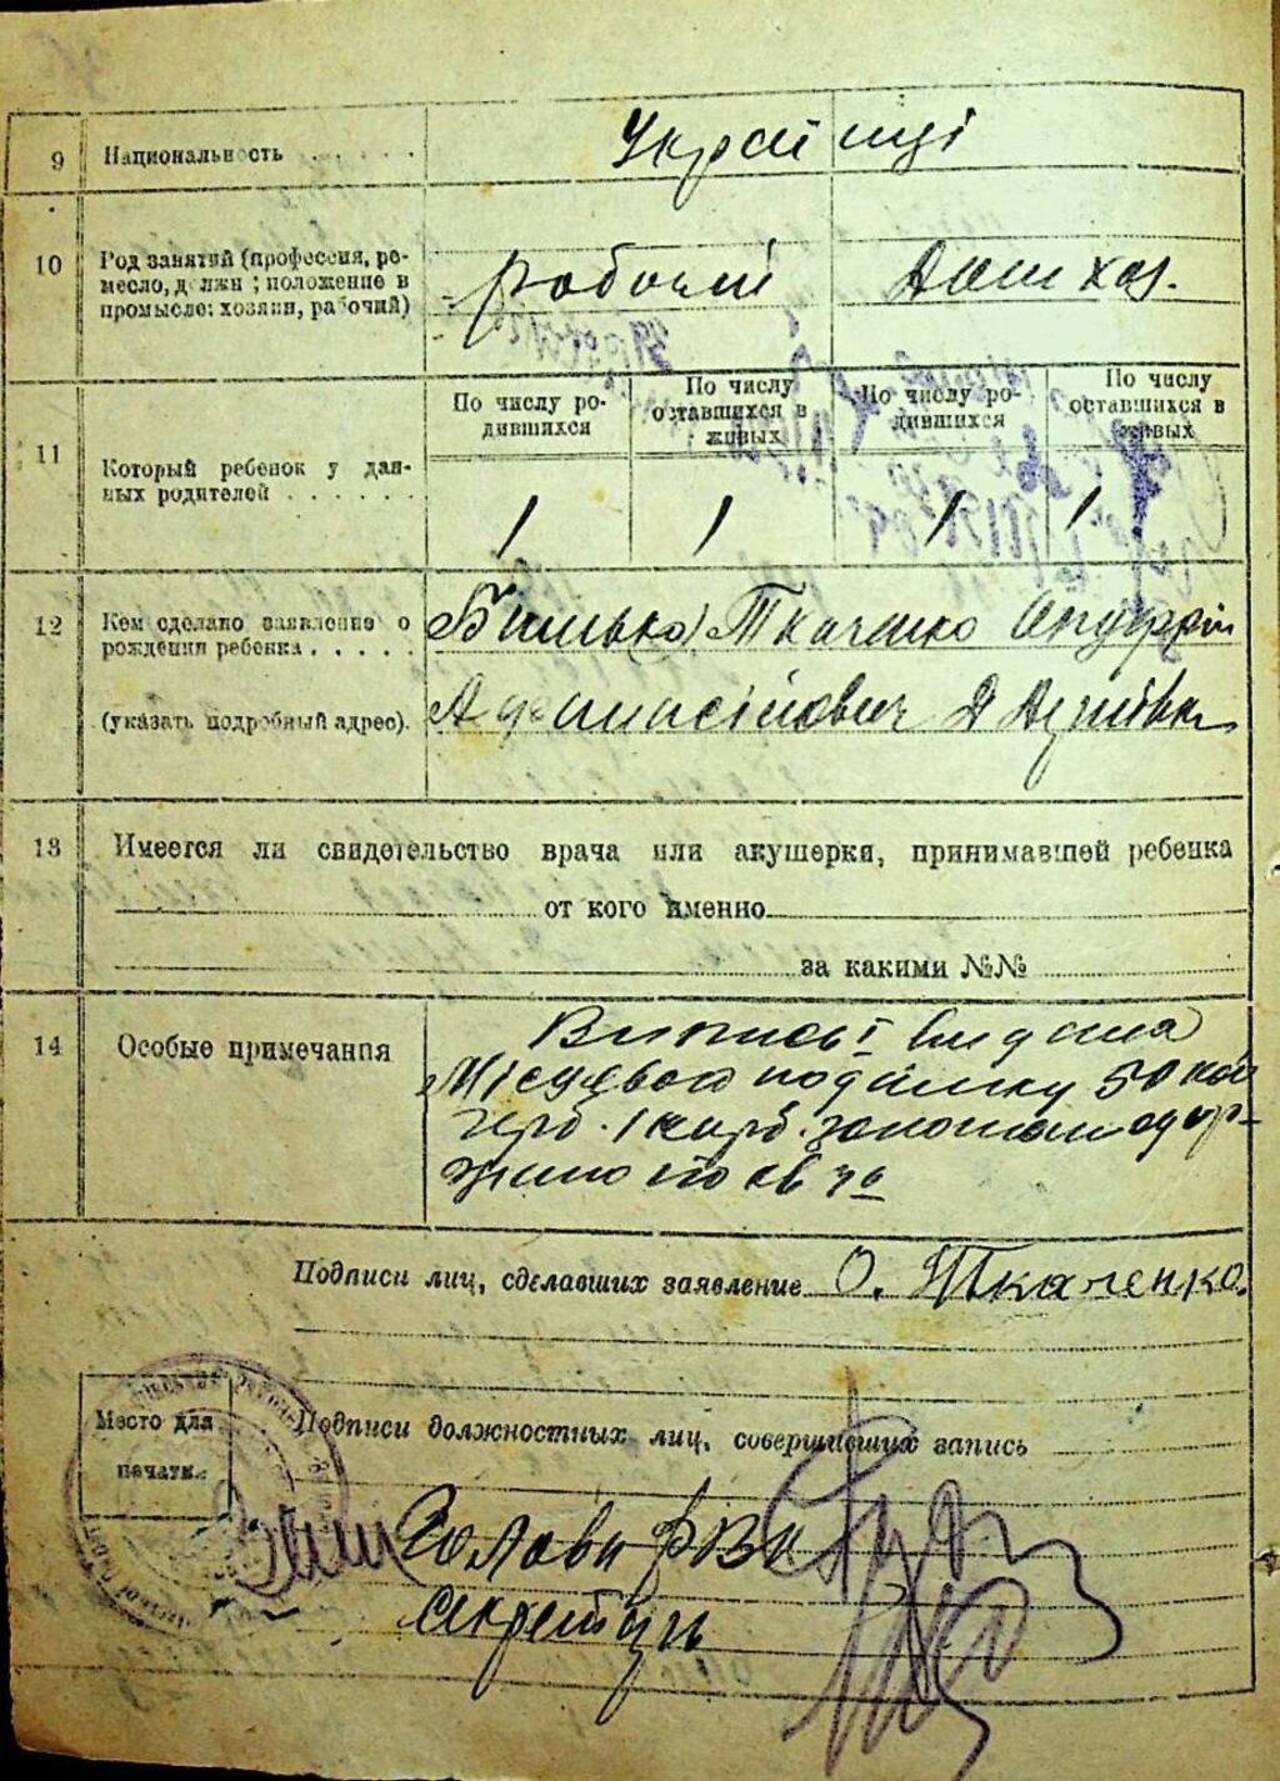 9 Национальность Українці
10 Род занятий (профессия, ре-
месло, должн ; положение в
промысле: хозяин, рабочий)
робочий Дом хоз.
11 Который ребенок у дан-
ных родителей
По числу ро-
дившихся
По числу
оставшихся в
живых
По числу ро-
дившихся
По числу
оставшихся в
живых
1 1 1 1
12 Кем сделано заявление о
рождении ребенка
(указать подробный адрес).
Батько) Ткаченко Онуфрій
Афанасійович
13 Имеется ли свидетельство врача или акушерки, принимавшей ребенка
от кого именно
за какими №№
14 Особые примечания
Випись видана
Місцевого податку 50 коп
герб. 1 карб. одер-
жано по кв
Подписи лиц, сделавших заявление О. Ткаченко.
Место для
печати.
Подписи должностных лиц, совершивших запись
Голова РВК
Секретарь